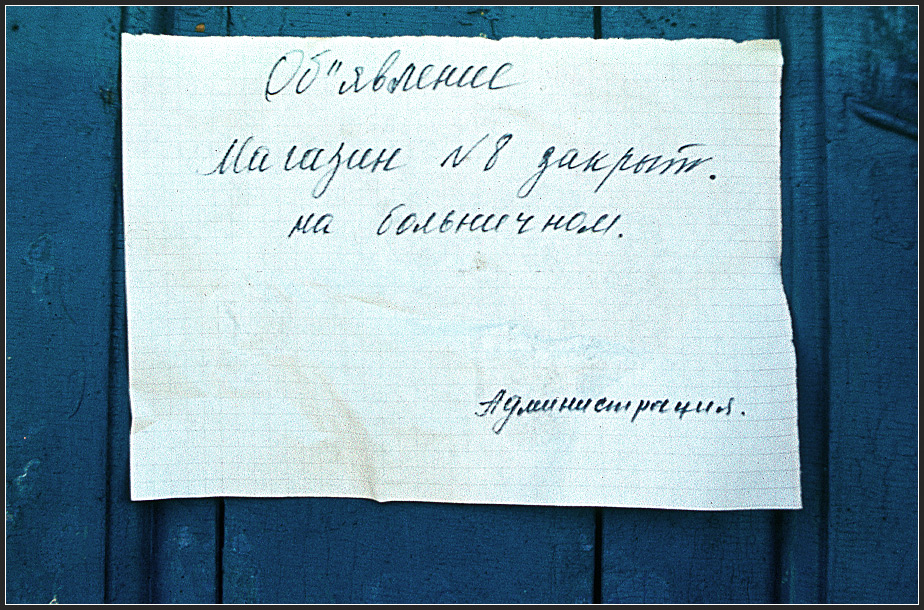 Об"явление
Магазин N 8 закрыт.
на больничном.
Администрация.